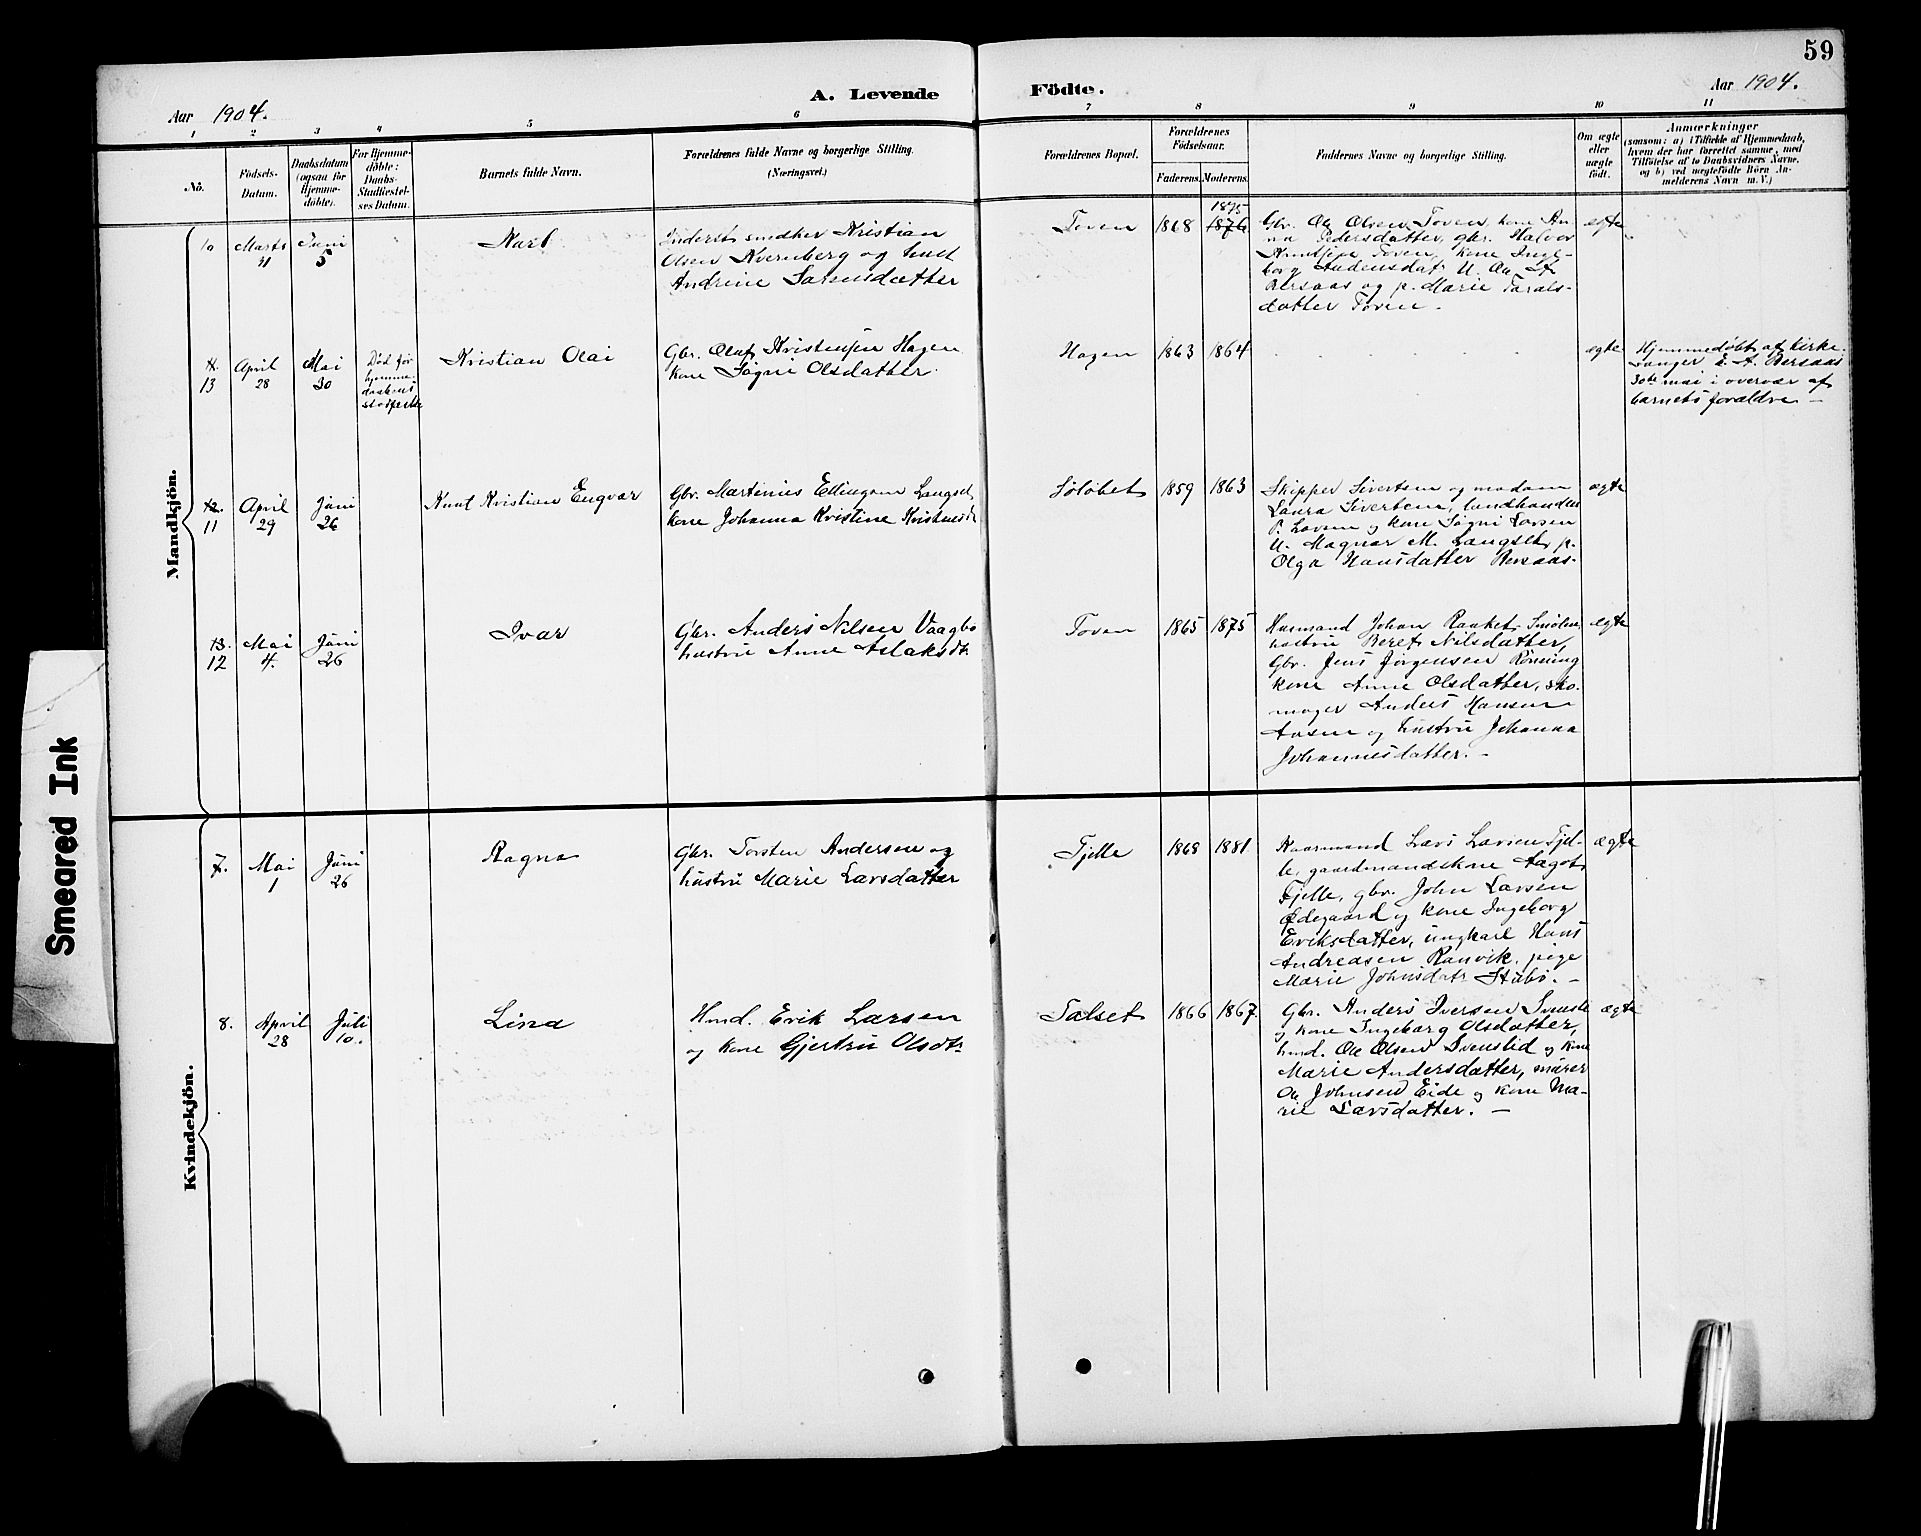 59
Aar 1904.
A. Levende Födte.
Aar 1904.
1 2 3 4 5 6 7 8 9 10 11
Nô.
Födsels-
Datum.
Daabsdatum
(ogsaa for
Hjemme-
döbte).
For Hjemme-
döbte:
Daabs-
Stadfæstel-
ses Datum.
Barnets fulde Navn.
Forældrenes fulde Navne og borgerlige Stilling.
(Næringsvei.)
Forældrenes Bopæl.
Forældrenes
Födselsaar.
Faderens. Moderens.
Faddernes Navne og borgerlige Stilling.
Om ægte
eller
uægte
født.
Anmærkninger
(saasom: a) i Tilfælde af Hjemmedaab,
hvem der har forrettet samme, med
Tilföielse af to Daabsvidners Navne,
og b) ved uægtefödte Börn An-
melderens Navn m. V.)
Mandkjön.
10
Marts
31
Juni
5
Karl
Inderst, snedker Kristian
Olsen Kvernberg og hust
Andrine Sørensdatter
Toven
1868
1875
1876
Gbr. Ole Olsen Toven, kone An-
na Pedersdatter, gbr. Halvor
Toven, kone Inge-
borg
Bersaas og p. Marie Tarals-
datter Toven.
ægte
11.
13
April
28
Mai
30
Død før
hjemme
daabens
stadfestlse
Kristian Olai
Gbr. Olaf Kristensen Hagen
kone Søgni Olsdatter.
Hagen
1863
1864
ægte
Hjemmedøbt af kirke-
sanger E. A. Bersaas
30te mai i overvær af
barnets forældre —
12.
11
April
29
Juni
26
Knut Kristian Engvar
Gbr. Martinus Ellingsen Langset
kone Johanna Kristine
Søløbet
1859
1863
Skipper Sivertsen og madam
Laura Sivertsen, landhandler
P. Larsen og kone Søgni Larsen
U. Magnar M. Langset, p.
Olga Hansdatter Bersaas-
ægte
13.
12
Mai
4.
Juni
26
Ivar
Gbr. Anders Nilsen Vaagbø
hustru Anne Aslaksdt.
Toven
1865
1875
Husmand Johan
hustru Beret Nilsdatter,
Gbr. Jens Jørgensen Rønning
kone Anne Olsdatter, sko-
mager Anders Hansen
Aasen og hustru Johanna
Johannesdatter. —
ægte
Kvindekjön.
7.
Mai
1
Juni
26
Ragna
Gbr. Torsten Andersen og
hustru Marie Larsdatter
Tjelle
1868
1881
Kaarmand Lars Larsen Tjel-
le, gaardmandskone Aagot
Tjelle, gbr. John Larsen
Ødegaard og kone Ingeborg
Eriksdatter, ungkarl Hans
Andreasen Ranvik, pige
Marie Johnsdatr Stubø. —
ægte
8.
April
28
Juli
10.
Lina
Hmd. Erik Larsen
og kone Gjertru Olsdtr
Talset
1866
1867.
Gbr. Anders Iversen
og kone Ingeborg Olsdatter,
hmd. Ole Olsen Svenslid og kone
Marie Andersdatter, murer
Ole Johnsen Eide og kone Ma-
rie Larsdatter. —
ægte
Smeared Ink